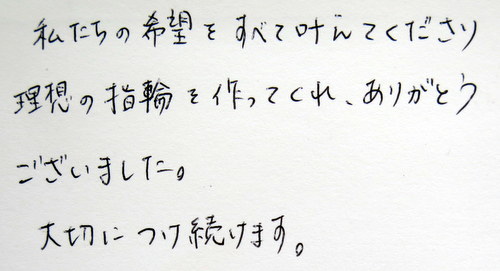 私たちの希望をすべて叶えてくださり
理想の指輪を作ってくれ、ありがとう
ございました。
大切につけ続けます。